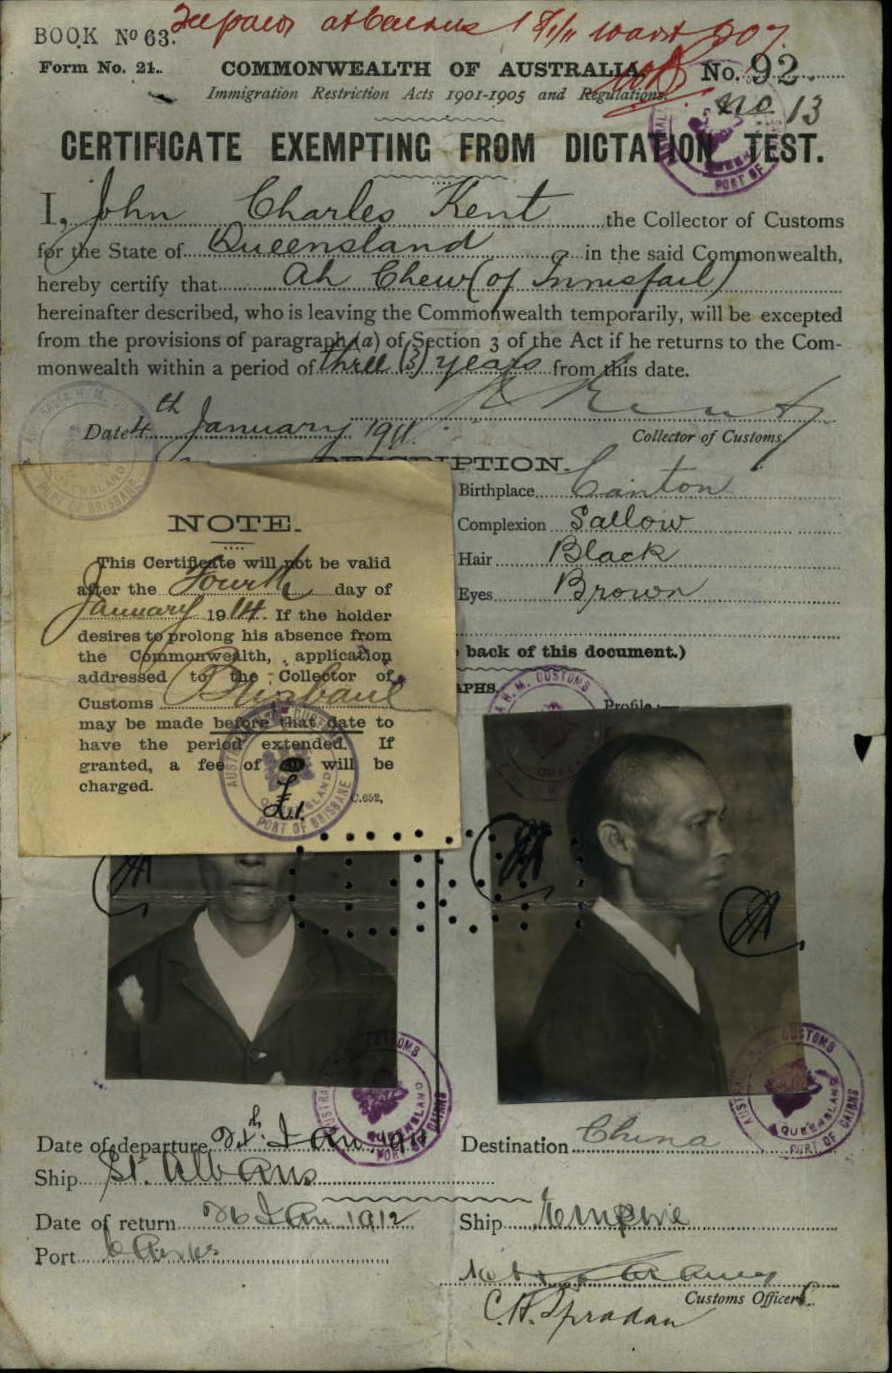 BOOK No 63.
Form No. 21.. COMMONWEALTH OF AUSTRALIA. No. 92
Immigration Restriction Acts 1901-1905 and Regulations.
No 13
CERTIFICATE EXEMPTING FROM DICTATION TEST.
I, John Charles Kent the Collector of Customs
for the State of Queensland in the said Commonwealth,
hereby certify that Ah Chew (of Innisfail)
hereinafter described, who is leaving the Commonwealth temporarily, will be excepted
from the provisions of paragraph (a) of Section 3 of the Act if he returns to the Com-
monwealth within a period of three (3) years from this date.
Kent
Date 4th January 1911. Collector of Customs
PTION.
Birthplace Canton
Complexion Sallow
Hair Black
Eyes Brown
back of this document.)
APHS.
Profile:
NOTE.
This Certificate will not be valid
after the Fourth day of
January 1914. If the holder
desires to prolong his absence from
the Commonwealth, application
addressed to the Collector of
Customs Brisbane
may be made before that date to
have the period extended. If
granted, a fee of will be
£1.
charged.
C.652,
H.M. CUSTOMS
PORT OF BRISBANE
QUEENSLAND
PORT OF CAIRNS
AUSTRALIA H.M. CUSTOMS
QUEENSLAND
PORT OF CAIRNS
Date of departure 21st Jan 1911 Destination China
Ship St. Albans
Date of return 26 Jan 1912 Ship Empire
Port Cairns
Customs Officer